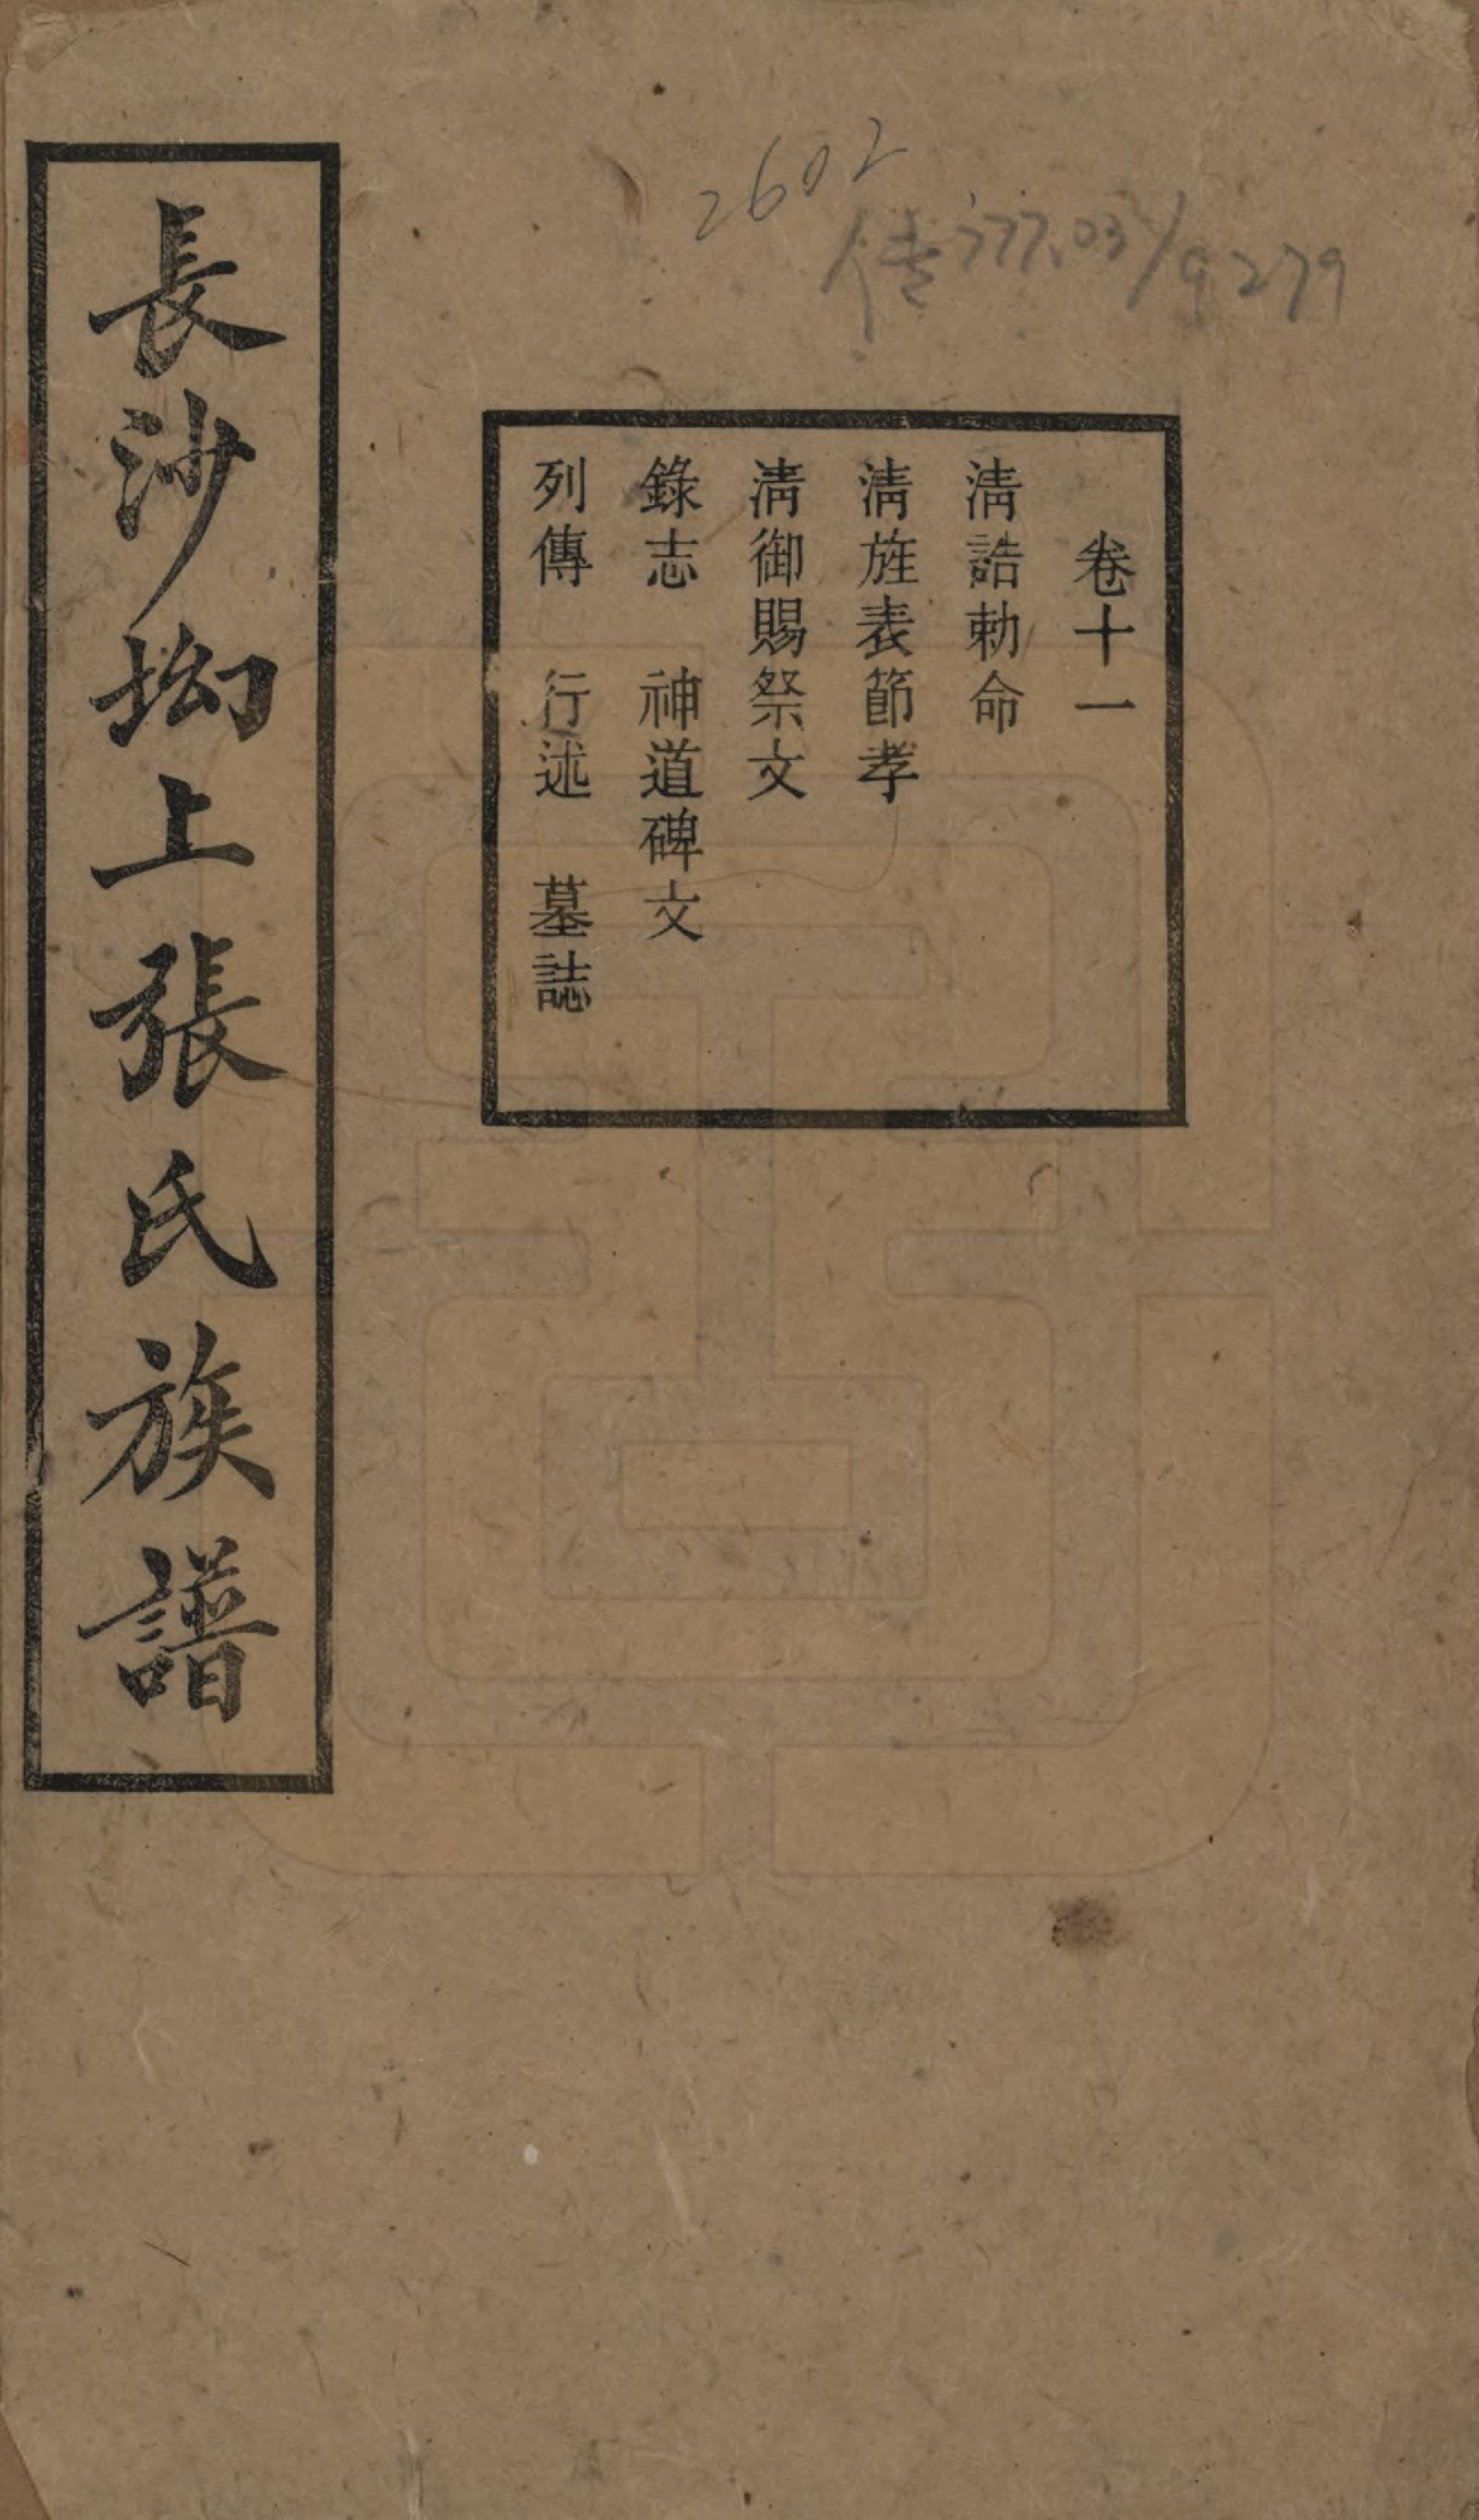 2602
传 777.03/9279
卷十一
淸誥勅命
淸旌表節孝
淸御賜祭文
錄志 神道碑文
列傳 行述 墓誌
長沙坳上張氏族譜